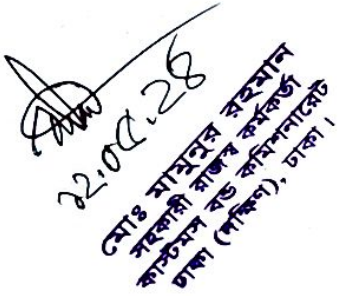 ২২.০৫.২৪
মোঃ মামুনুর রহমান
সহকারী রাজস্ব কর্মকর্তা
কাস্টমস বন্ড কমিশনারেট
ঢাকা (দক্ষিণ), ঢাকা।